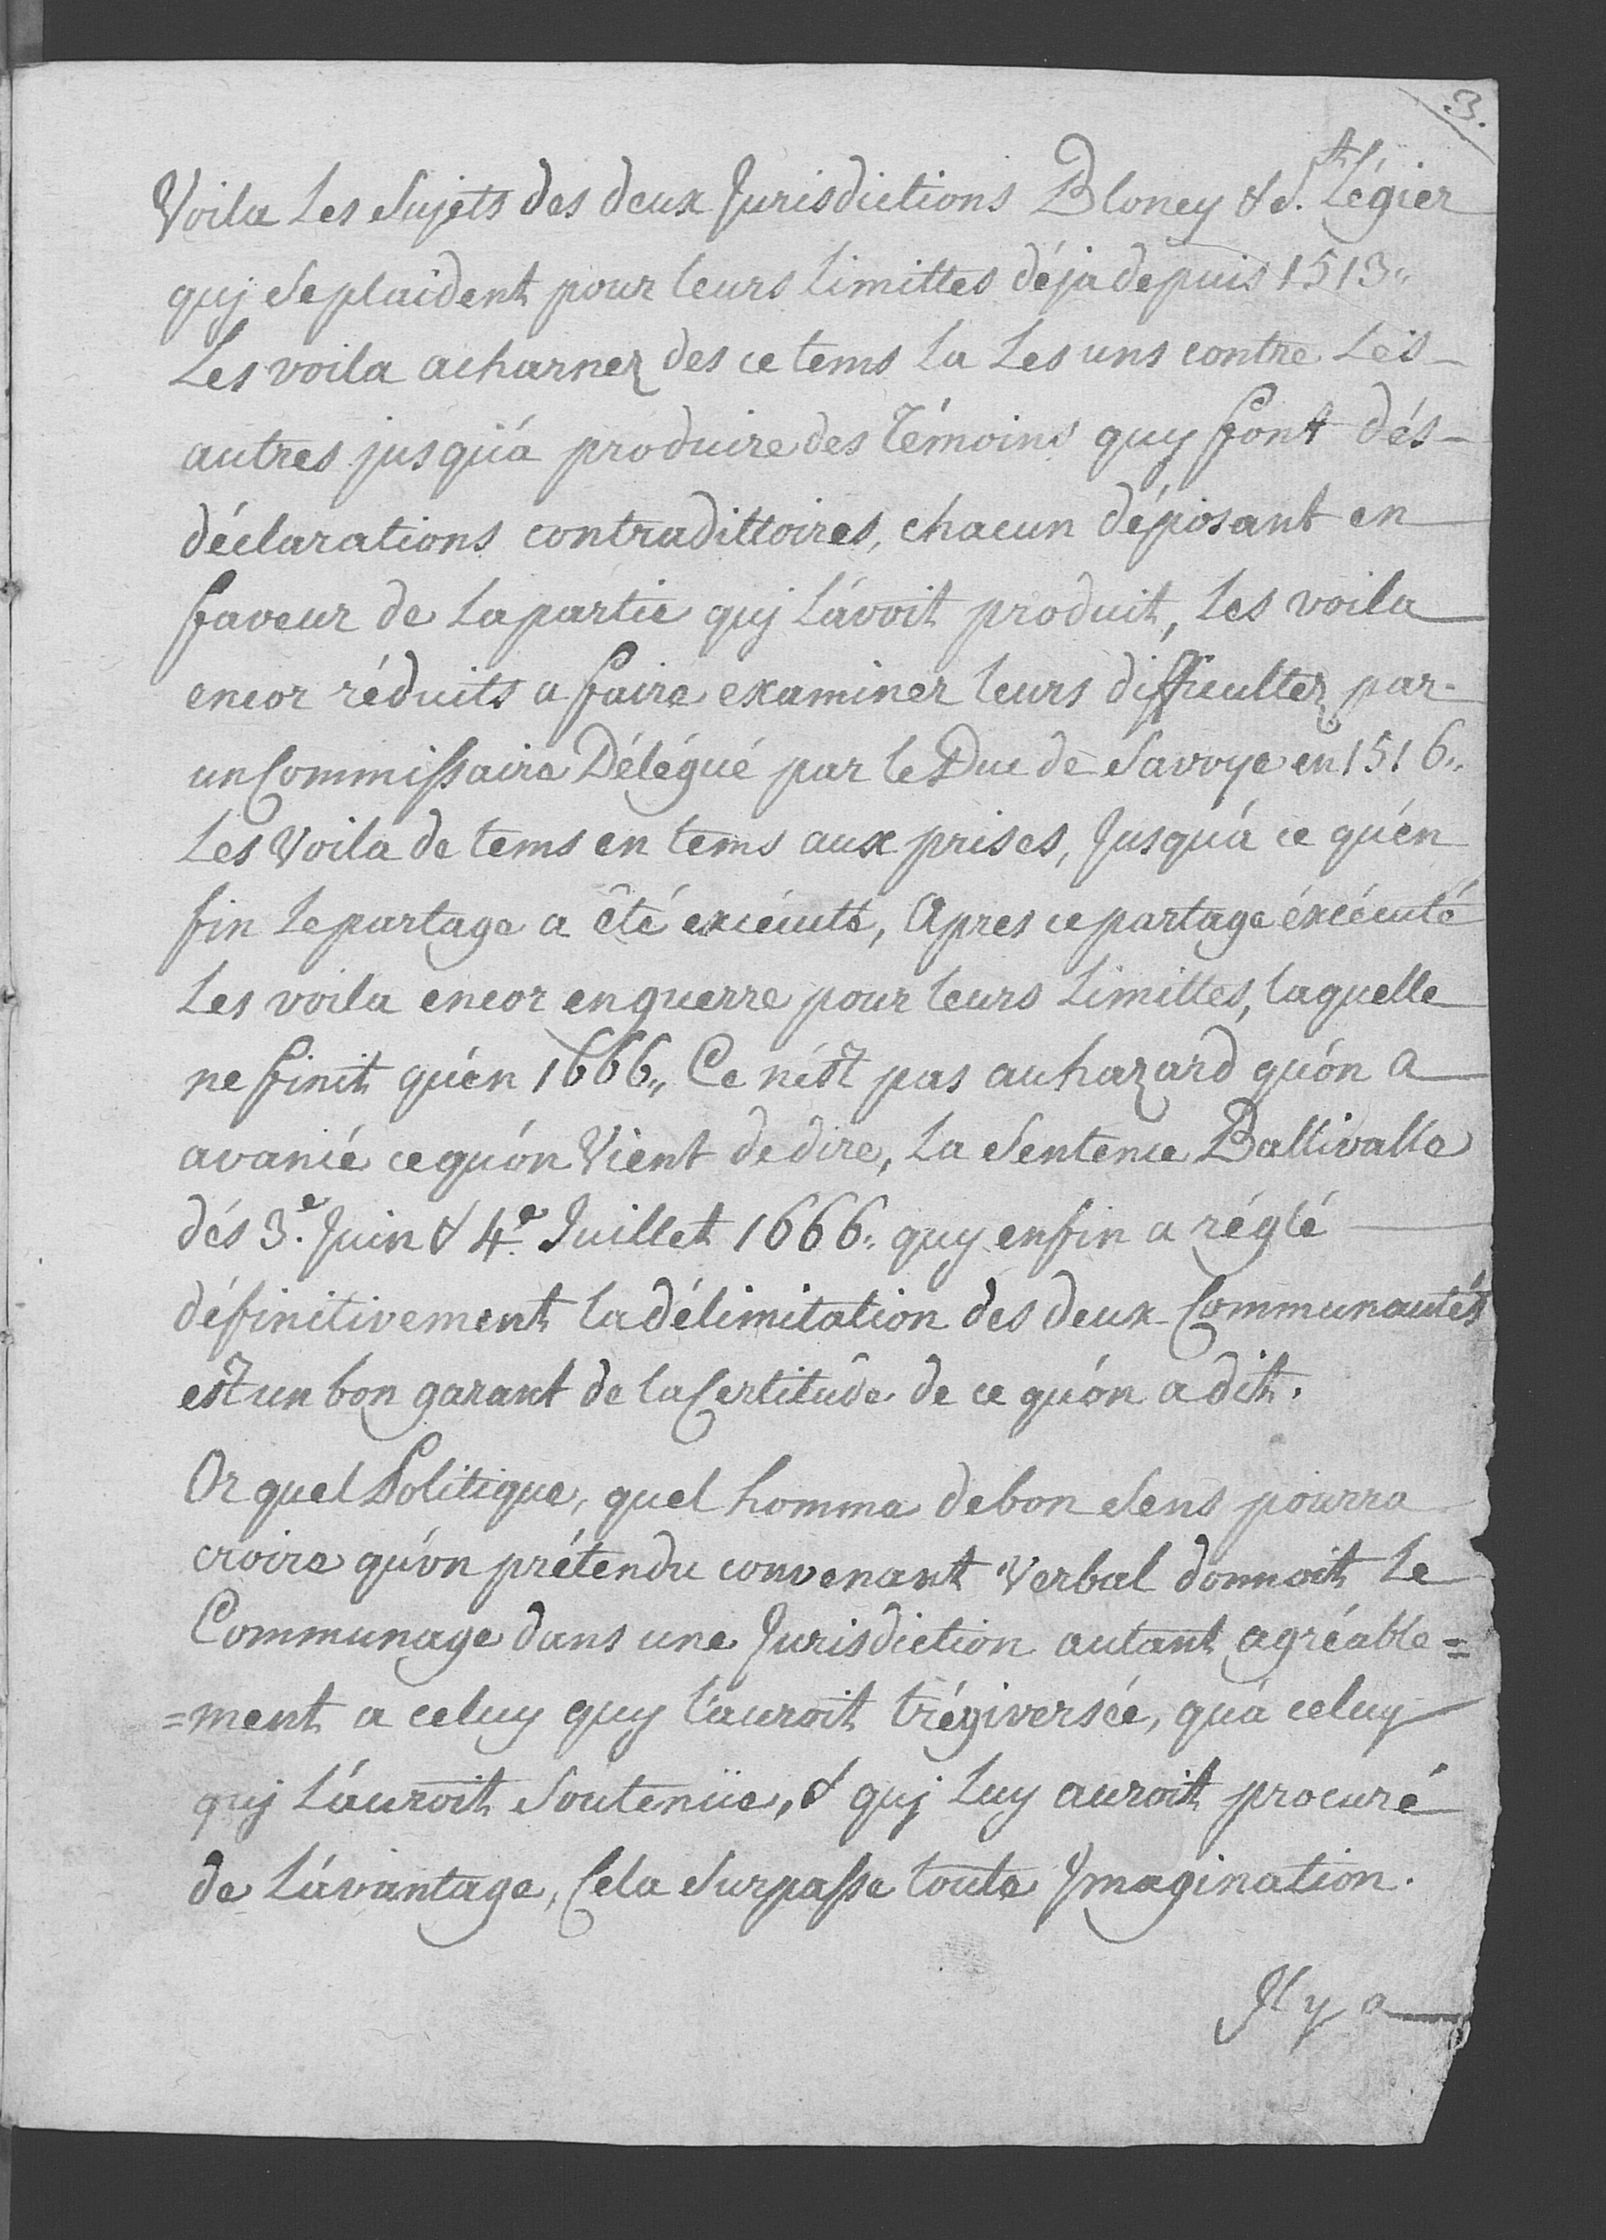 3.
Voila Les Sujets des deux Jurisdictions Bloney & S.t Légier
quj Se plaident pour leurs limittes déja depuis 1513.
Les voila acharnez des ce tems la Les uns contre Lés
autres jusqu'á produire des Témoins quy font dés
déclarations contradittoires, chacun déposant en
faveur de La partie quj L'avoit produit, Les voila
encor réduits a faire examiner leurs difficultez par
un Commissaire Délégué par le Duc de Savoye en 1516,,
Les Voila de tems en tems aux prises, Jusqu'á ce qu'én
fin Le partage a êté exécuté, Apres ce partage éxécuté
Les voila encor en guerre pour leurs Limittes, laquelle
ne finit qu'én 1666,, Ce n'ést pas au hazard qu'ón a
avancé ce qu'ón Vient de dire, La Sentence Ballivalle
dés 3.e Juin & 4.e Juillet 1666. quy enfin a réglé
définitivement la délimitation des deux Communautés
est un bon garant de la Certitude de ce qu'ón a dit.
Or quel Politique, quel homme de bon Sens pourra
croire qu'ún prétendu convenant Verbal donnoit Le
Communage dans une Jurisdiction autant agréable=
=ment a celuy quy l'auroit trégiversée, qu'a celuy
quj L'áuroit Soutenüe, & quj Luy auroit procuré
de L'ávantage, Cela Surpasse toute Jmagination.
Jl y a